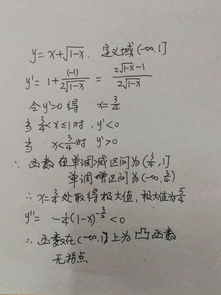 y=x+√(1-x). 定义域(-∞,1]
y'=1+(-1)/(2√(1-x)) = (2√(1-x)-1)/(2√(1-x))
令y'=0 得 x=3/4
当 3/4<x≤1时, y'<0
当 x<3/4时 y'>0
∴ 函数在单调减区间为(3/4,1]
单调增区间为(-∞,3/4)
∴ x=3/4处取得极大值, 极大值为5/4
y''= -1/4(1-x)^(-3/2)<0
∴ 函数在(-∞,1]上为凸函数
无拐点